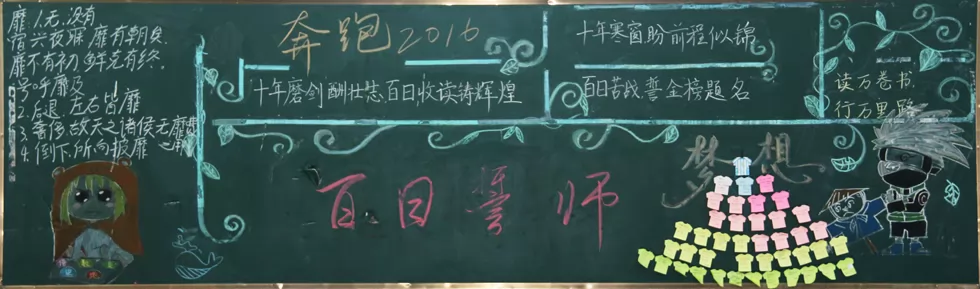 靡 1.无.没有
夙兴夜寐 靡有朝矣
靡不有初 鲜克有终.
2.后退. 左右皆靡
3.奢侈 故天之诸侯无靡
4.倒下.所向披靡
奔跑2016
十年磨剑酬壮志.百日攻读铸辉煌
十年寒窗盼前程似锦
百日苦战.誓金榜题名
读万卷书.
行万里路
百日誓师
梦想